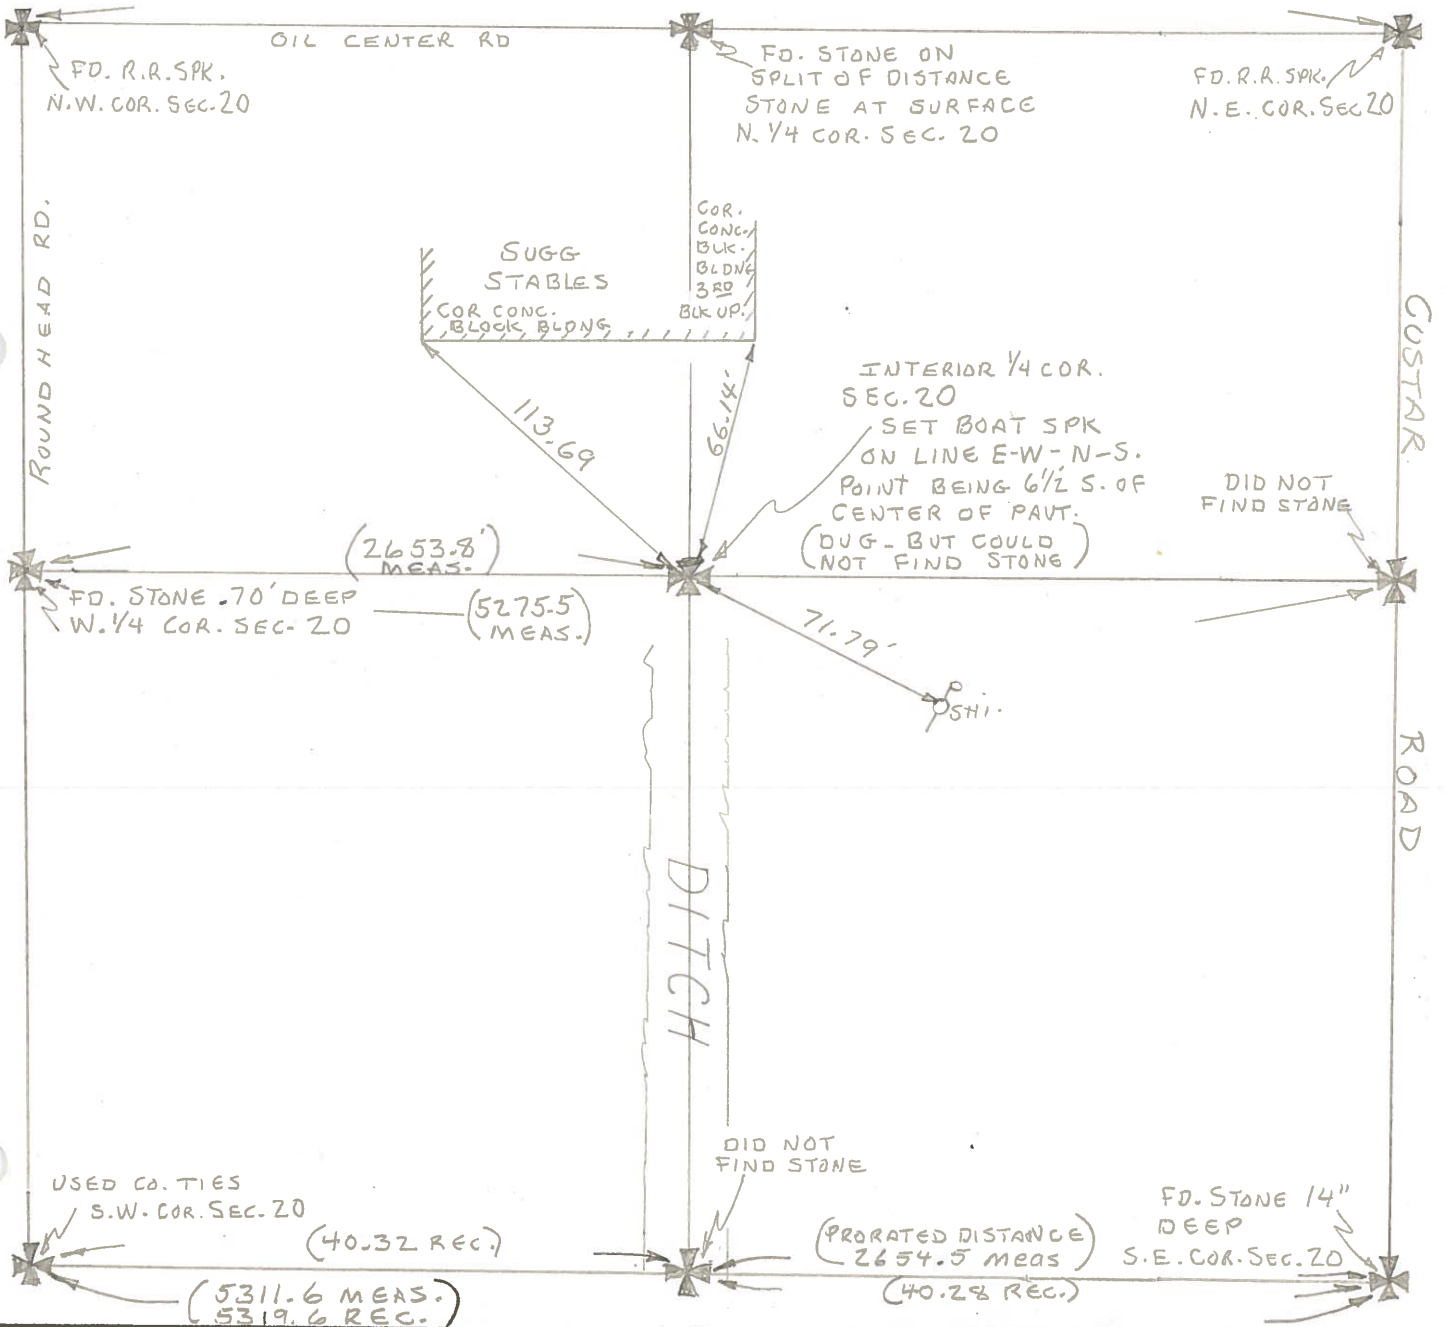 OIL CENTER RD
FD. R.R. SPK.
N.W. COR. SEC. 20
FD. STONE ON
SPLIT OF DISTANCE
STONE AT SURFACE
N. 1/4 COR. SEC. 20
FD. R.R. SPK.
N.E. COR. SEC 20
ROUND HEAD RD.
SUGG
STABLES
COR CONC.
BLOCK BLDNG
COR.
CONC.
BLK.
BLDNG
3RD
BLK UP.
CUSTAR
ROAD
113.69
66.14'
INTERIOR 1/4 COR.
SEC. 20
SET BOAT SPK
ON LINE E-W-N-S.
POINT BEING 6 1/2 S. OF
CENTER OF PAVT.
(DUG - BUT COULD
NOT FIND STONE)
DID NOT
FIND STONE
(2653.8'
MEAS.)
FD. STONE .70' DEEP
W. 1/4 COR. SEC. 20
(5275.5
MEAS.)
71.79'
SHI.
DITCH
DID NOT
FIND STONE
USED CO. TIES
S.W. COR. SEC. 20
(40.32 REC.)
(5311.6 MEAS.
5319.6 REC.)
(PRORATED DISTANCE
2654.5 meas)
(40.28 REC.)
FD. STONE 14"
DEEP
S.E. COR. SEC. 20